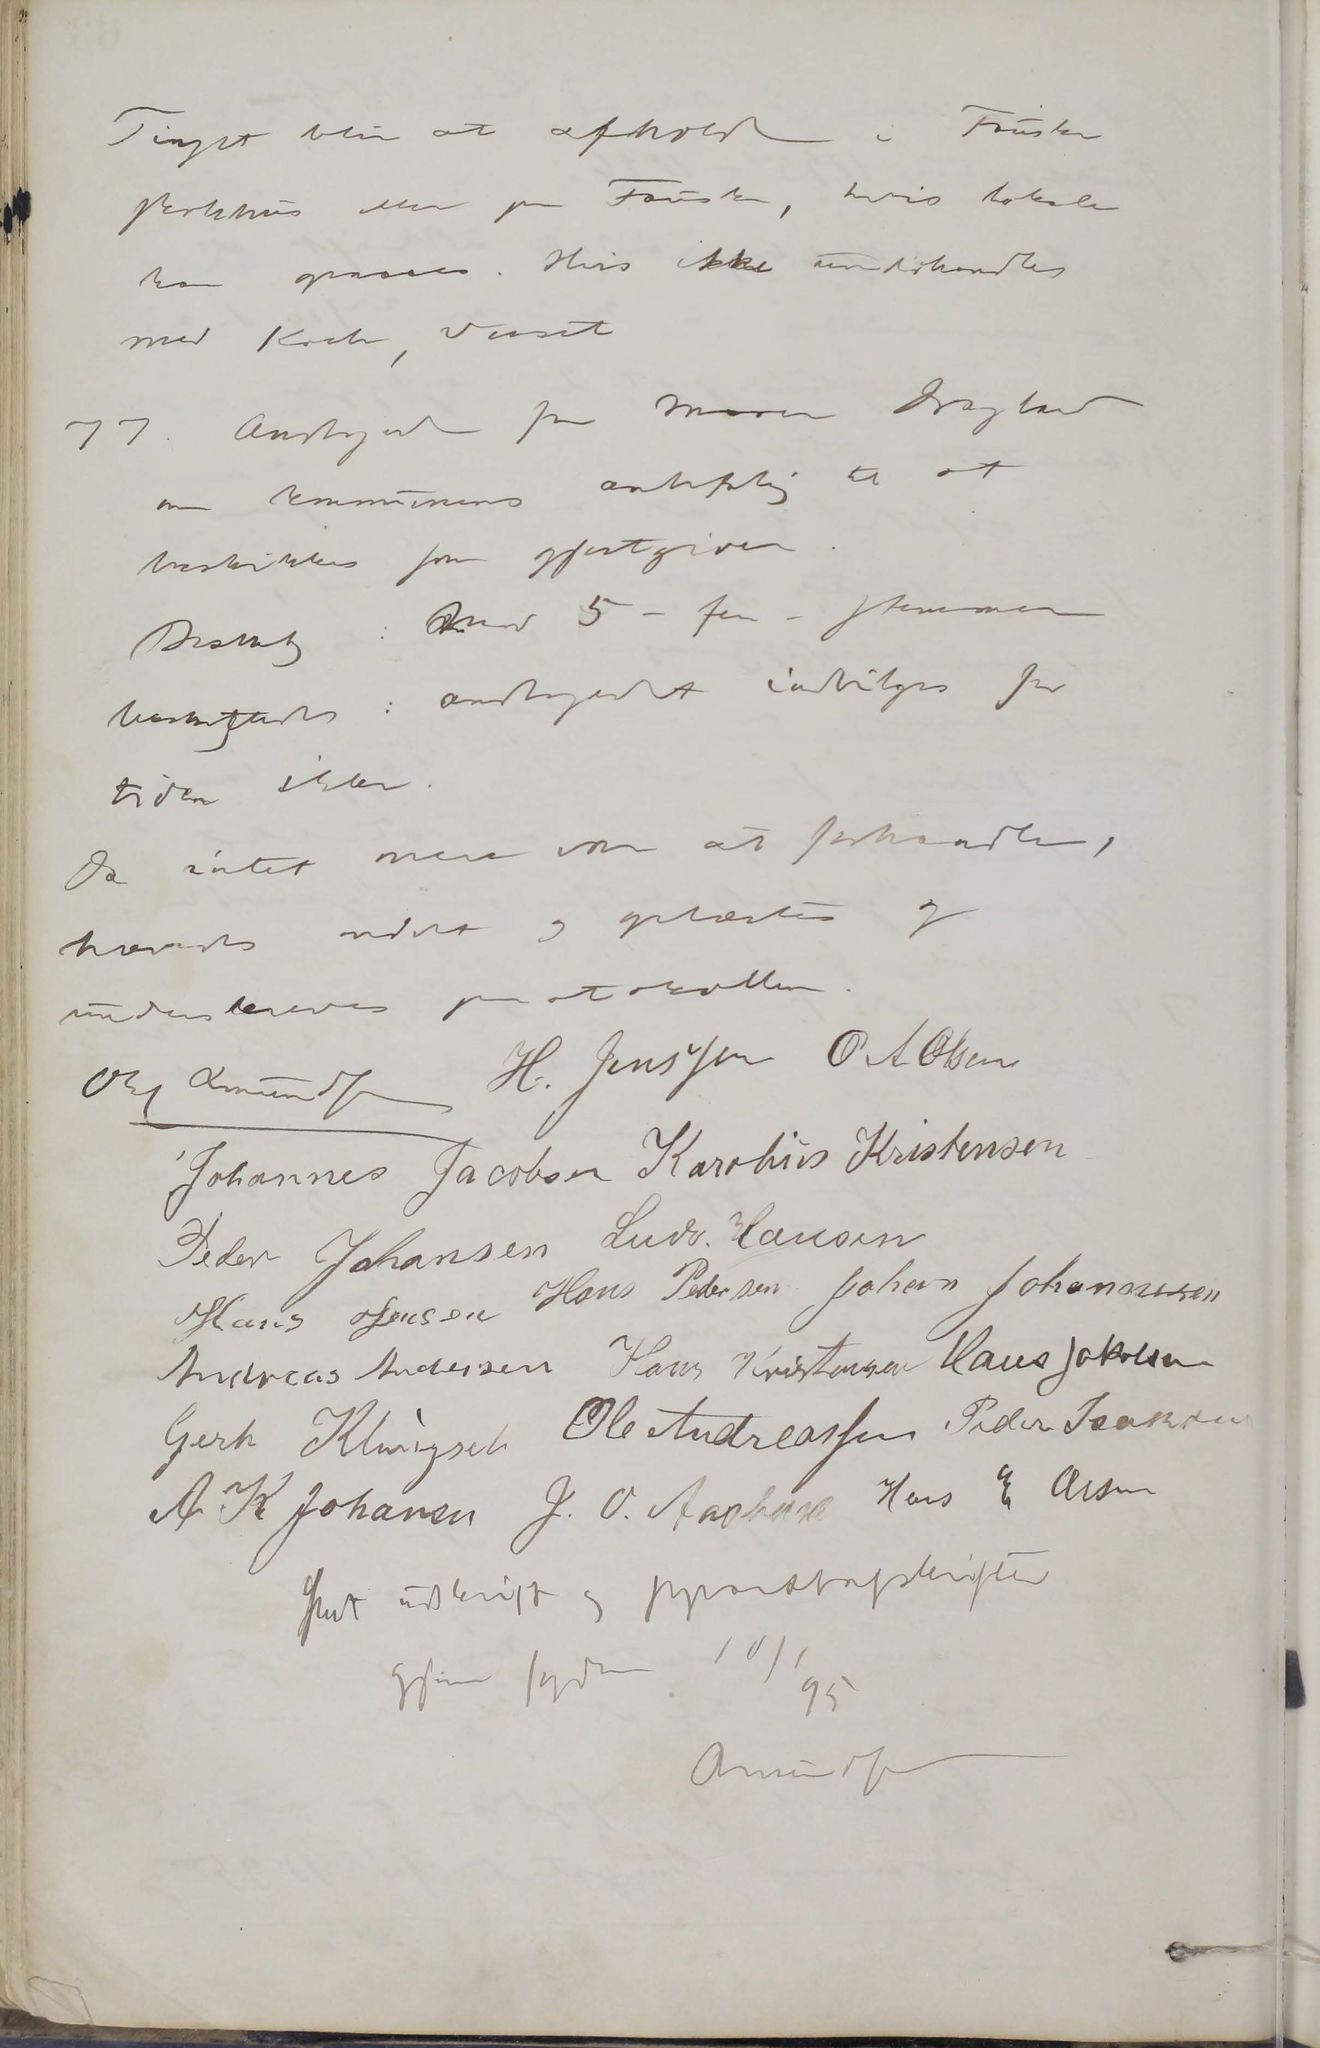 Tinget blir at afholde i Fauske
herredshus eller paa Fauske, hvis lokale
kan . Hvis ikke underhandles
med Koch, Venset
77. Andragende fra Maren Dragland
om kommunens anbefaling til at
beskikkes som gjestgiver.
Beslutning: Med 5 - fem - stemmer
besluttedes: andragendet indvilges for
tiden ikke.
Da intet mere var at forhandle,
hævedes mødet og oplæstes og
underskreves protokollen.
Amundsen H. Jenssen O A Olsen
Johannes Jacobsen Karolius Kristensen
Peder Johansen Ludv. Hansen
Hans Jensen Hans Pedersen Johan Johannesen
Andreas Andersen Hans Kristensen Hans Jakobsen
Gerh Klüngseth Ole Andreassen Peder Isaksen
A K Johansen J. O. Hans E Olsen
udskrift og
10/1
95
Amundsen